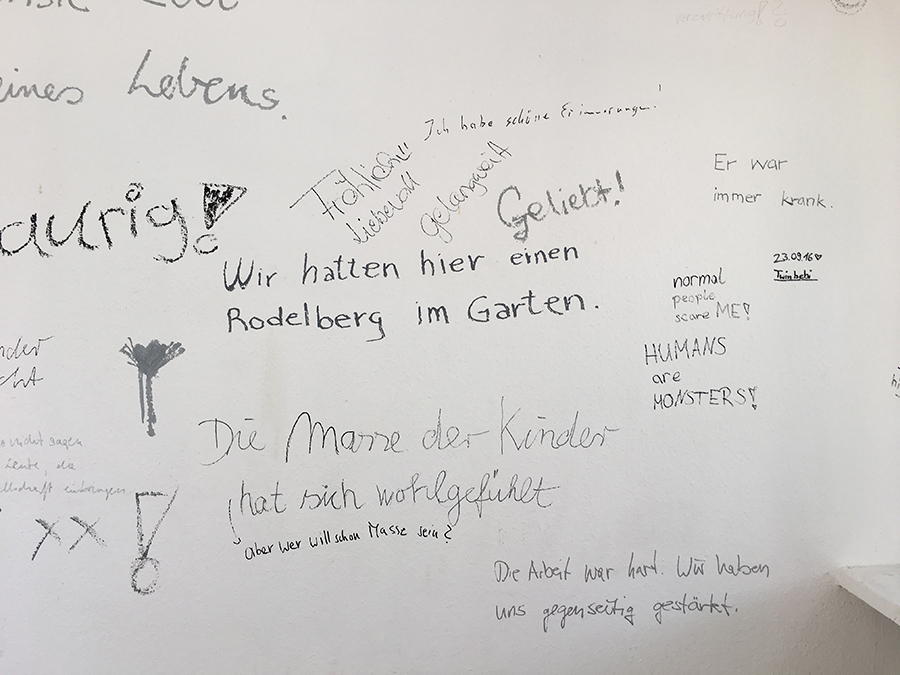 eines Lebens.
Ich habe schöne Erinnerungen!
Fröhlich!!
Liebevoll
gelangweilt
Geliebt!
Er war
immer krank.
aurig!
Wir hatten hier einen
Rodelberg im Garten.
23.09.16♥
normal
people
scare ME!
HUMANS
are
MONSTERS!
Die Masse der Kinder
hat sich wohlgefühlt
Aber wer will schon Masse sein?
nicht sagen
Leute, da
xx!
Die Arbeit war hart. Wir haben
uns gegenseitig gestärkt.